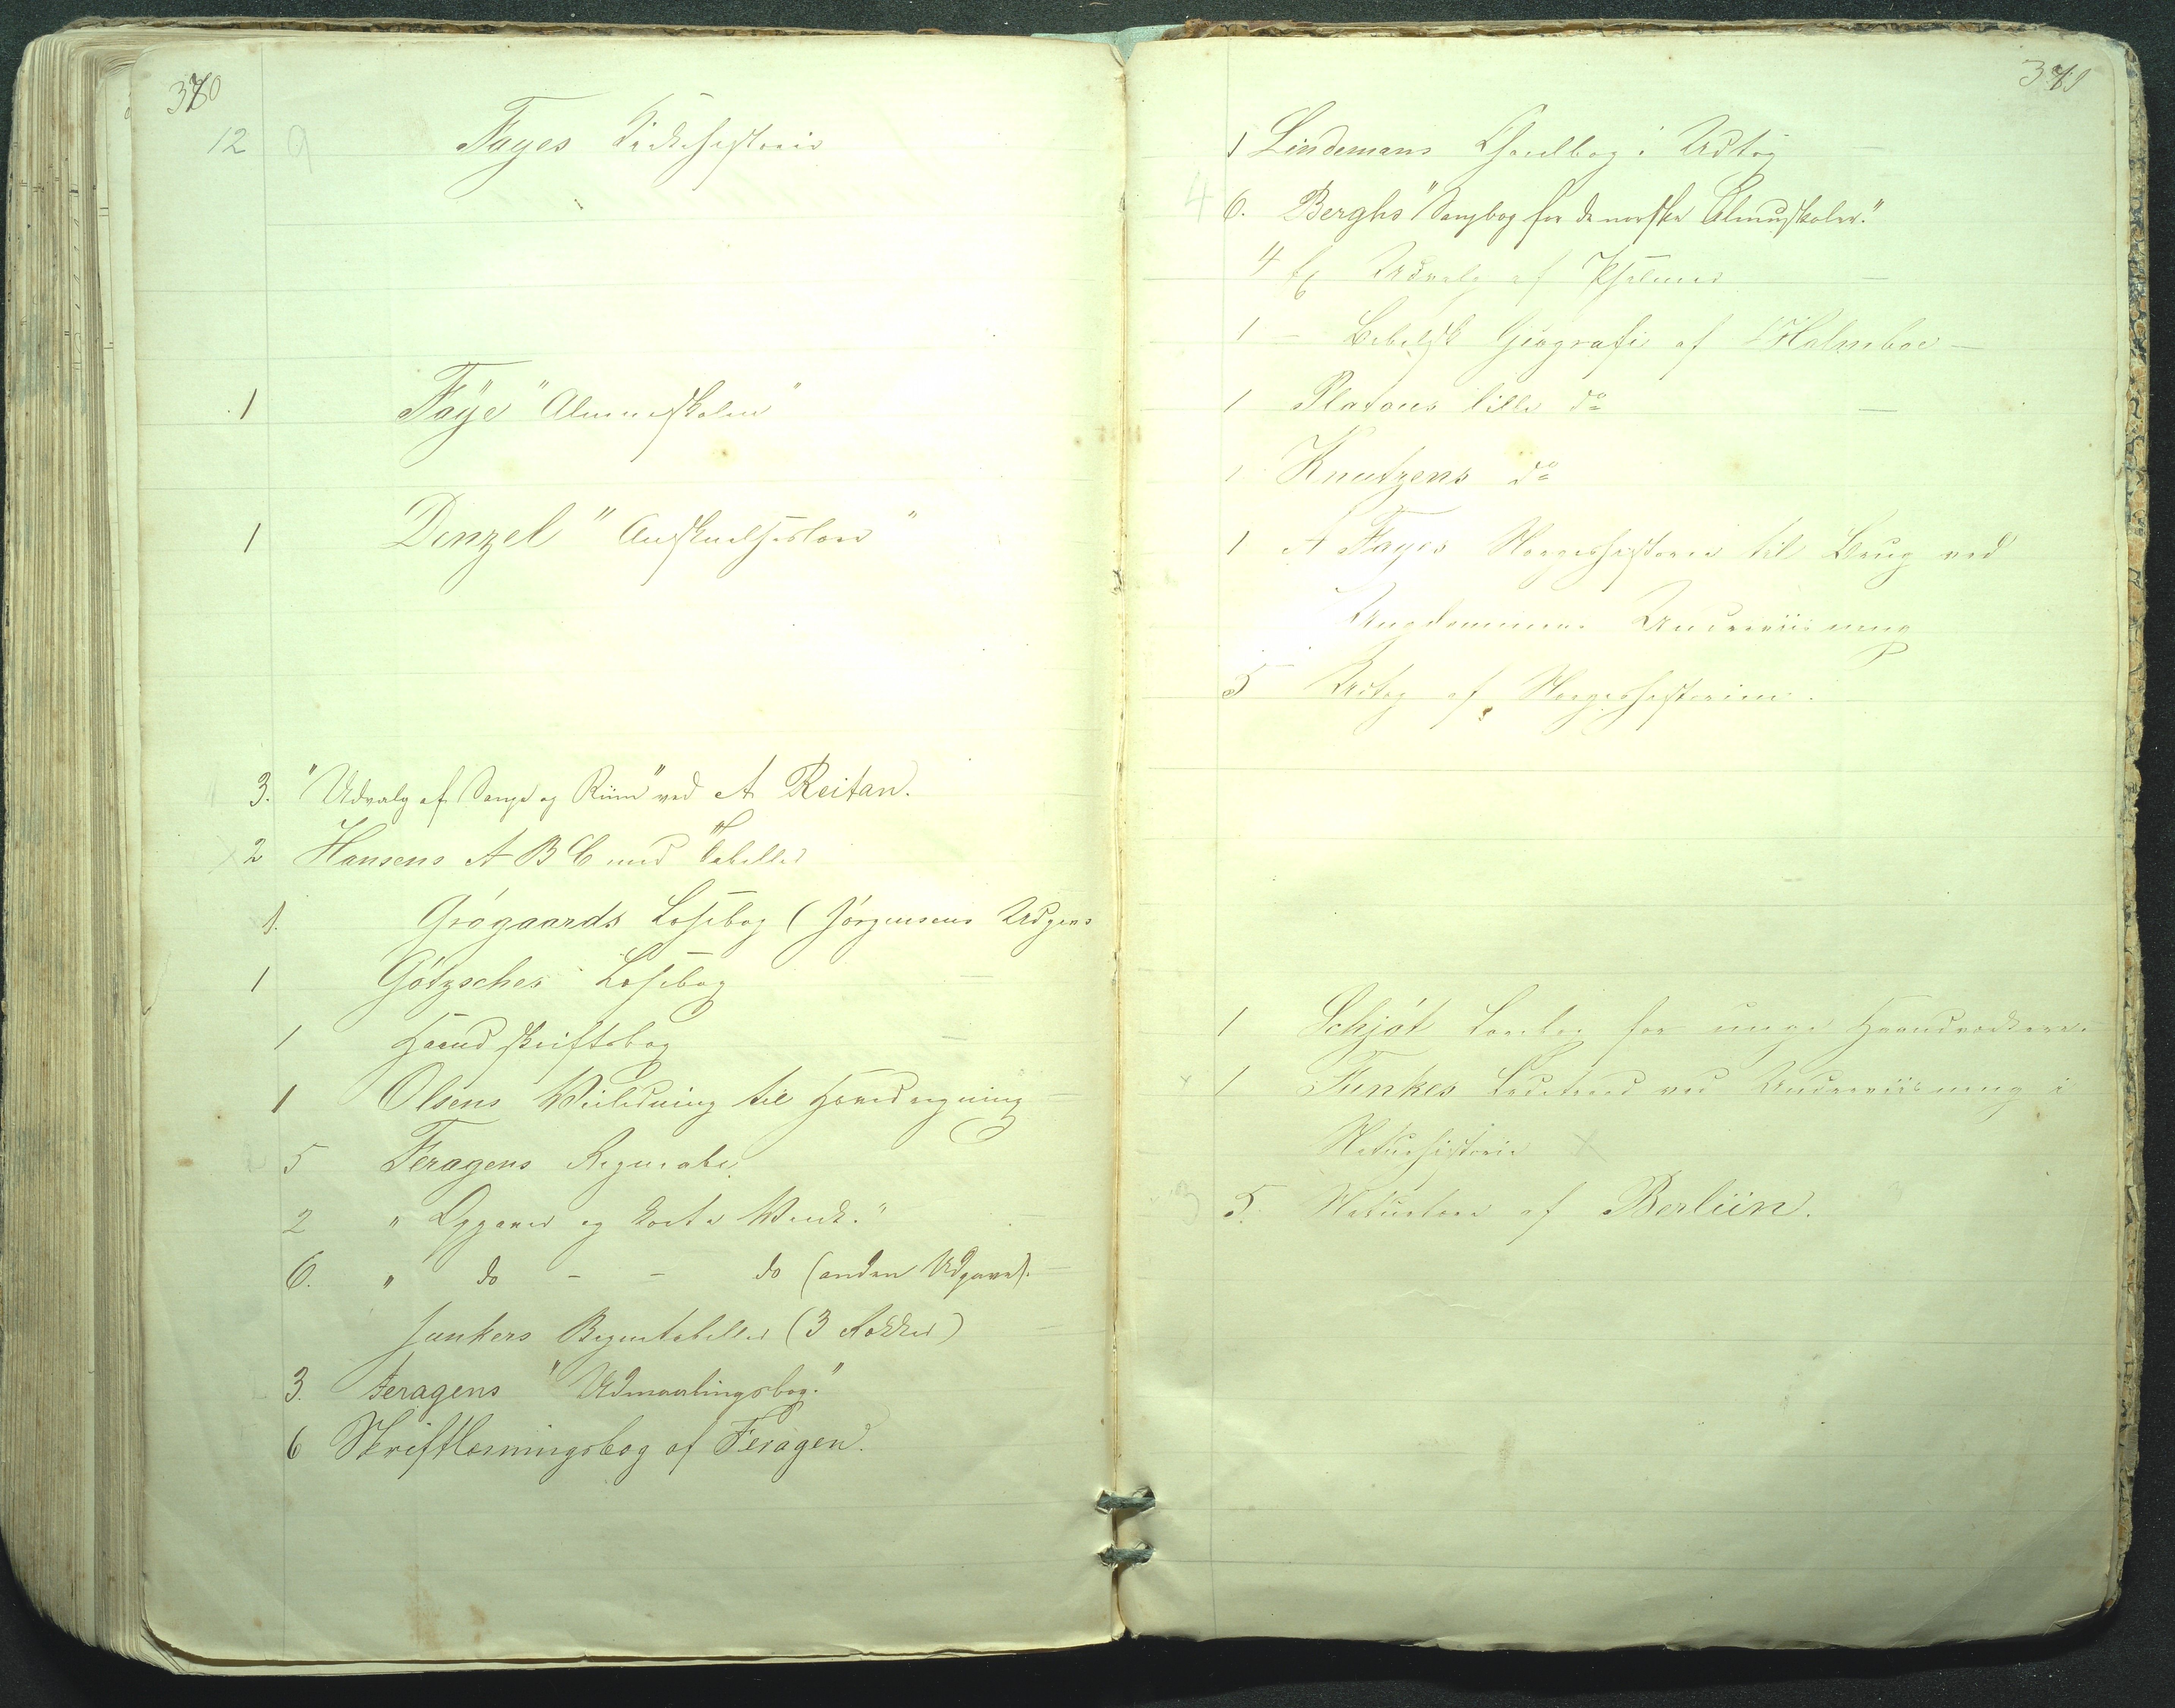 370
12 9 Fayes Kirkehistorie
1 Faye "Almueskolen"
1 Denzel "Anskuelseslære"
3. "Udvalg af Sange og Riim" ved A Reitan.
2 Hansens A B C med Tabeller
1. Grøgaards Læsebog (Jørgensens Udgave
1 Götzsches Læsebog
1 Haandskriftsbog
1 Olsens Veiledning til Hovedregning
5 Feragens Regne
2 " Opgaver og korte Veink."
6. " do - - do (anden Udgave).
Junkers Regnetabeller (3 Rækker)
3. Feragens "Udmaalingsbog."
6 Skriftlæsningsbog af Feragen.
371
1 Lindemans Choralbog i Udtog
4 6. Berghs "Sangbog for de norske Almuskoler."
4 Ex Udvalg af Psalmer
1 - Bibelsk Geografi af Holmboe -
1 Platous lille do
1 Knutzens do
1 A Fayes Norgeshistorie til Brug ved
Ungdommens Underviisning
5 Udtog af Norgeshistorien.
1 Schjøt Lærebog for unge Haandværkere
x 1 Funkes Ledetraad ved Underviisning i
Naturhistorie x
3 5. Naturlære af Berliin.